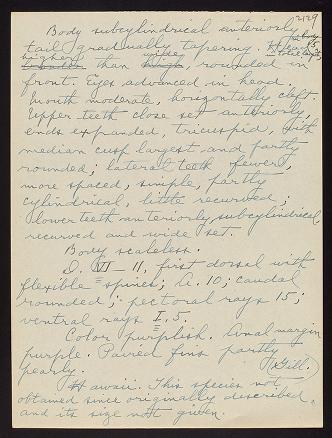 2129
Body subcylindrical anteriorly,
tail gradually tapering. Head
higher than wide rounded in
front. Eyes advanced in head.
Mouth moderate, horizontally cleft.
Upper teeth close set anteriorly,
ends expanded, tricuspid, with
median cusp largest and partly
rounded; lateral teeth fewer,
more spaced, simple, partly
cylindrical, little recurved;
lower teeth anteriorly subcylindrical,
recurved and wide set.
Body scaleless.
D. VI-11, first dorsal with
flexible spines; A. 10; caudal
rounded; pectoral rays 15;
ventral rays I,5.
Color purplish. Anal margin
purple. Paired fins partly
pearly. (Gill.)
Hawaii. This species not
obtained since originally described
and its size not given.